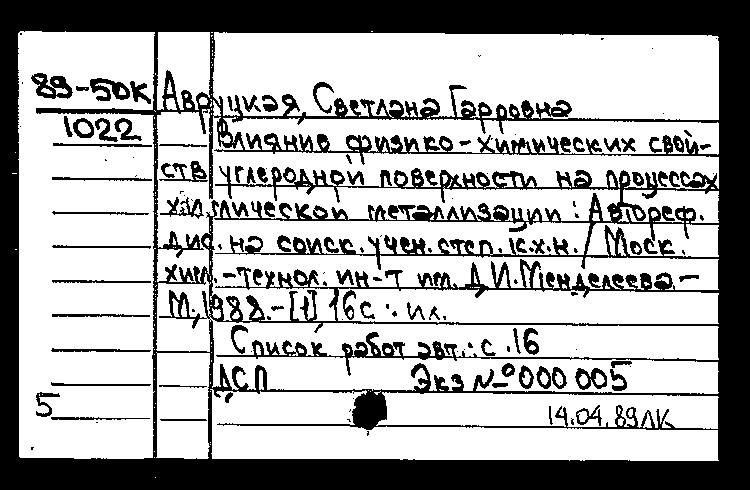 89-50К Авруцкая, Светлана Гарровна
1022 Влияние физико-химических свой-
ств углеродной поверхности на процессах
химической металлизации: Автореф.
дис. на соиск. учен. степ. к.х.н. / Моск.
хим.-технол. ин-т им. Д.И. Менделеева.-
М., 1988.-[1] 16с.: ил.
Список работ авт.: с.16
ДСП Экз № 000 005
5 14.04.89ЛК